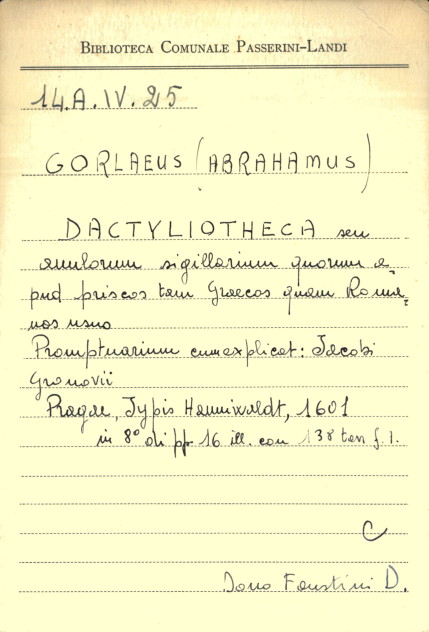 BIBLIOTECA COMUNALE PASSERINI-LANDI
14.A.IV.25
GORLAEUS (ABRAHAMUS)
DACTYLIOTHECA seu
anulorum sigillarium quorum a-
pud priscos tam Graecos quam Roma-
nos usus
Promptuarium cum explicat: Jacobi
Gronovii
Pragae, Typis Hanniwaldt, 1601
in 8° di pp. 16 ill. con 138 tav f. t.
C
Dono Faustini D.